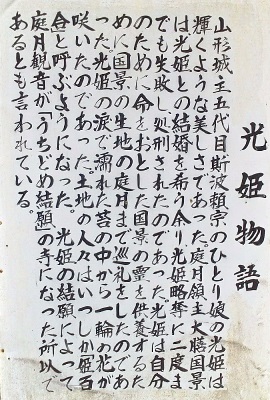 光姫物語
山形城主五代目斯波頼宗のひとり娘の光姫は
輝くような美しさであった。庭月領主大膳国景
は光姫との結婚を希う余り光姫略奪に二度ま
でも失敗し処刑されたのであった。光姫は自分
のために命をおとした国景の霊を供養するた
めに国景の生地の庭月まで巡礼をしたのであ
った光姫の涙で濡れた苔の中から一輪の花が
咲いたのであった。土地の人々はいつしか姫百
合と呼ぶようになった。光姫の結願によって
庭月観音が「うちどめ結願」の寺になった所以で
あるとも言われている。